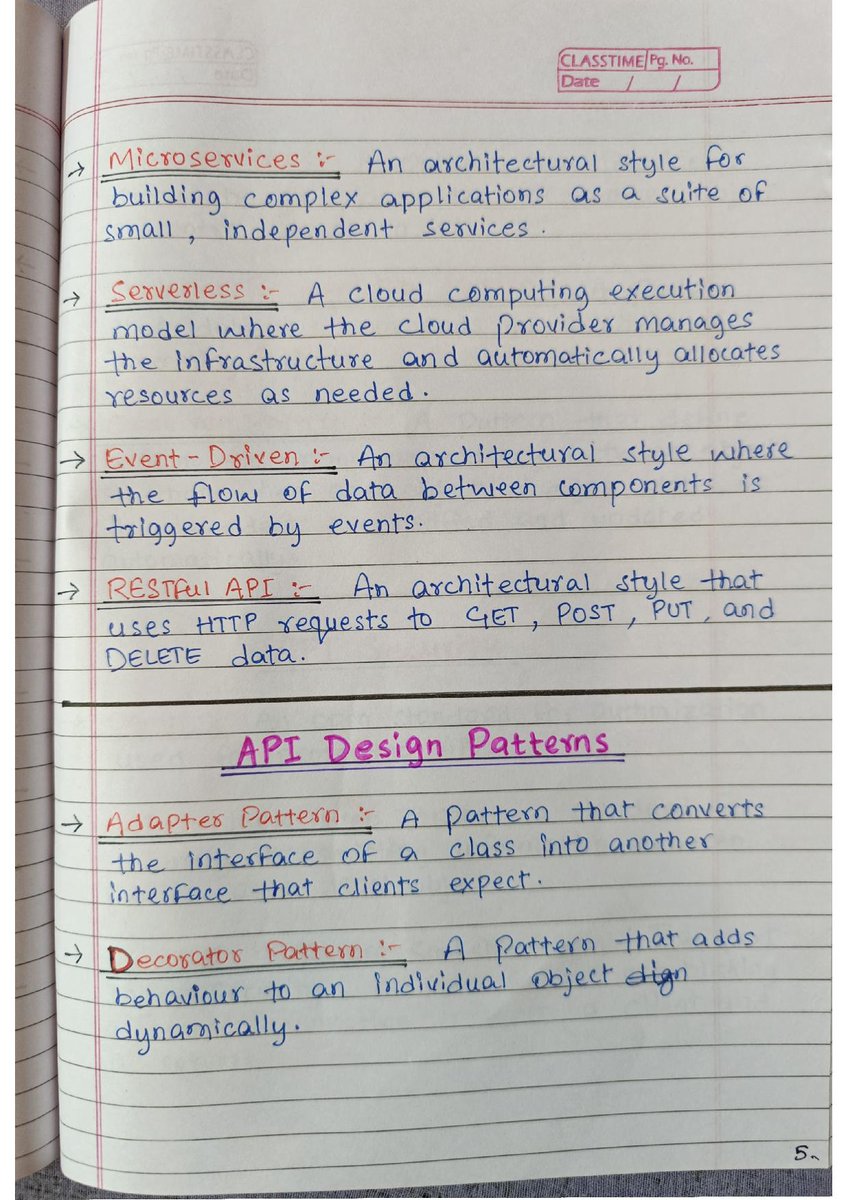 CLASSTIME Pg. No.
Date / /
→ Microservices :- An architectural style for
building complex applications as a suite of
small , independent services .
→ Serverless :- A cloud computing execution
model where the cloud provider manages
the infrastructure and automatically allocates
resources as needed.
→ Event-Driven :- An architectural style where
the flow of data between components is
triggered by events.
→ RESTful API :- An architectural style that
uses HTTP requests to GET, POST, PUT, and
DELETE data.
API Design Patterns
→ Adapter Pattern :- A pattern that converts
the interface of a class into another
interface that clients expect.
→ Decorator Pattern :- A pattern that adds
behaviour to an individual object
dynamically.
5.